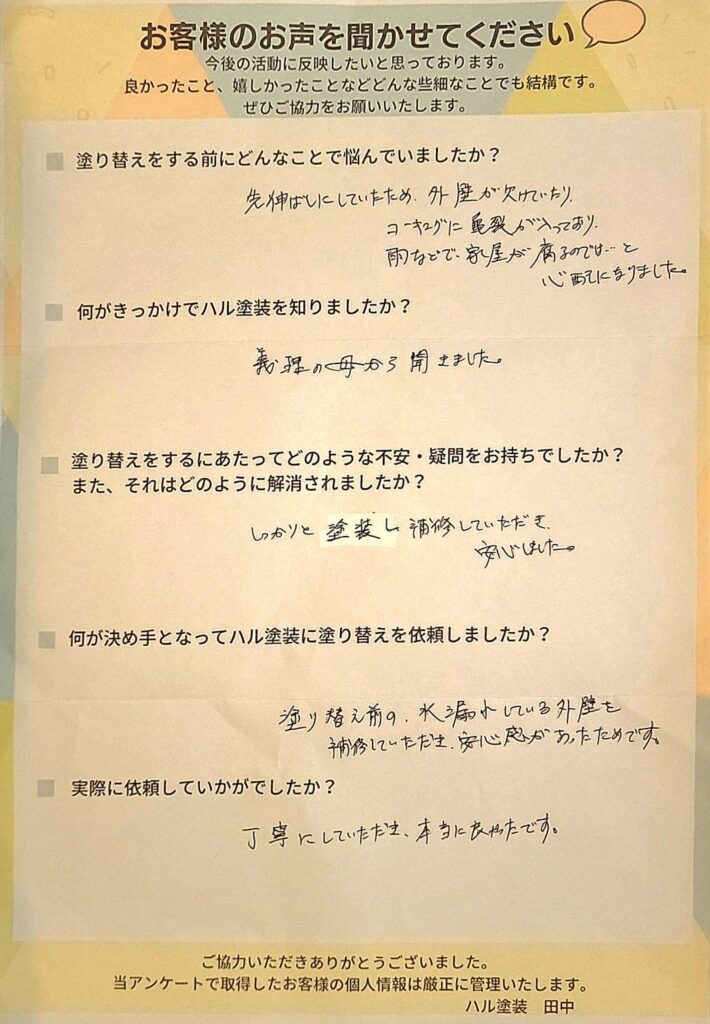 お客様のお声を聞かせてください
今後の活動に反映したいと思っております。
良かったこと、嬉しかったことなどどんな些細なことでも結構です。
ぜひご協力をお願いいたします。
塗り替えをする前にどんなことで悩んでいましたか？
先伸ばしにしていたため、外壁が欠けていたり、
コーキングに亀裂が入っており、
雨などで、家屋が腐るのでは…と
心配になりました。
何がきっかけでハル塗装を知りましたか？
義理の母から聞きました。
塗り替えをするにあたってどのような不安・疑問をお持ちでしたか？
また、それはどのように解消されましたか？
しっかりと塗装し補修していただき、
安心しました。
何が決め手となってハル塗装に塗り替えを依頼しましたか？
塗り替え前の、水漏れしている外壁を
補修していただき、安心感があったためです。
実際に依頼していかがでしたか？
丁寧にしていただき、本当に良かったです。
ご協力いただきありがとうございました。
当アンケートで取得したお客様の個人情報は厳正に管理いたします。
ハル塗装　田中